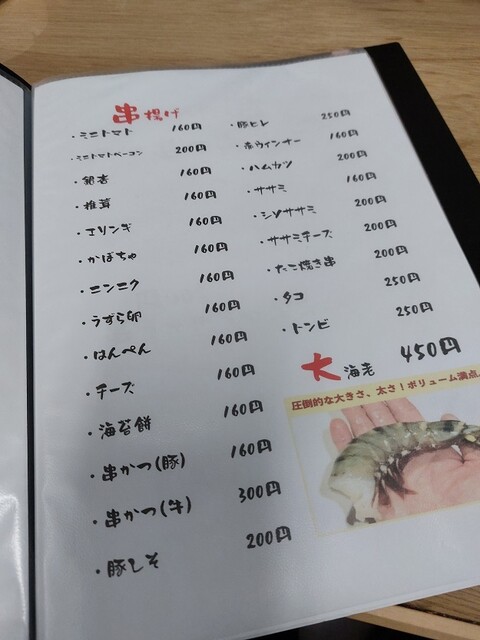 串揚げ
・ミニトマト 160円
・ミニトマトベーコン 200円
・銀杏 160円
・椎茸 160円
・エリンギ 160円
・かぼちゃ 160円
・ニンニク 160円
・うずら卵 160円
・はんぺん 160円
・チーズ 160円
・海苔餅 160円
・串かつ(豚) 160円
・串かつ(牛) 300円
・豚しそ 200円
・豚ヒレ 250円
・赤ウインナー 160円
・ハムカツ 200円
・ササミ 160円
・シソササミ 200円
・ササミチーズ 200円
・たこ焼き串 200円
・タコ 250円
・トンビ 250円
大海老 450円
圧倒的な大きさ、太さ!ボリューム満点